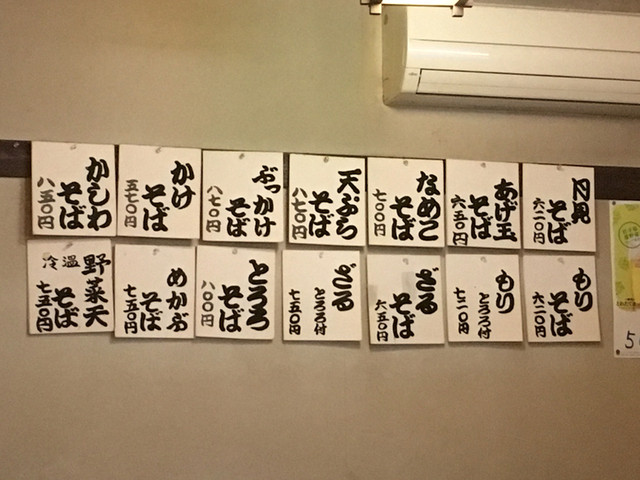 月見
そば
六二〇円
あげ玉
そば
六五〇円
なめこ
そば
七〇〇円
天ぷら
そば
八七〇円
ぶっかけ
そば
八七〇円
かけ
そば
五七〇円
かしわ
そば
八五〇円
もり
そば
六二〇円
もり
とろろ付
七二〇円
ざる
そば
六五〇円
ざる
とろろ付
七五〇円
とろろ
そば
八〇〇円
めかぶ
そば
七五〇円
野菜天
そば
温
冷
七五〇円